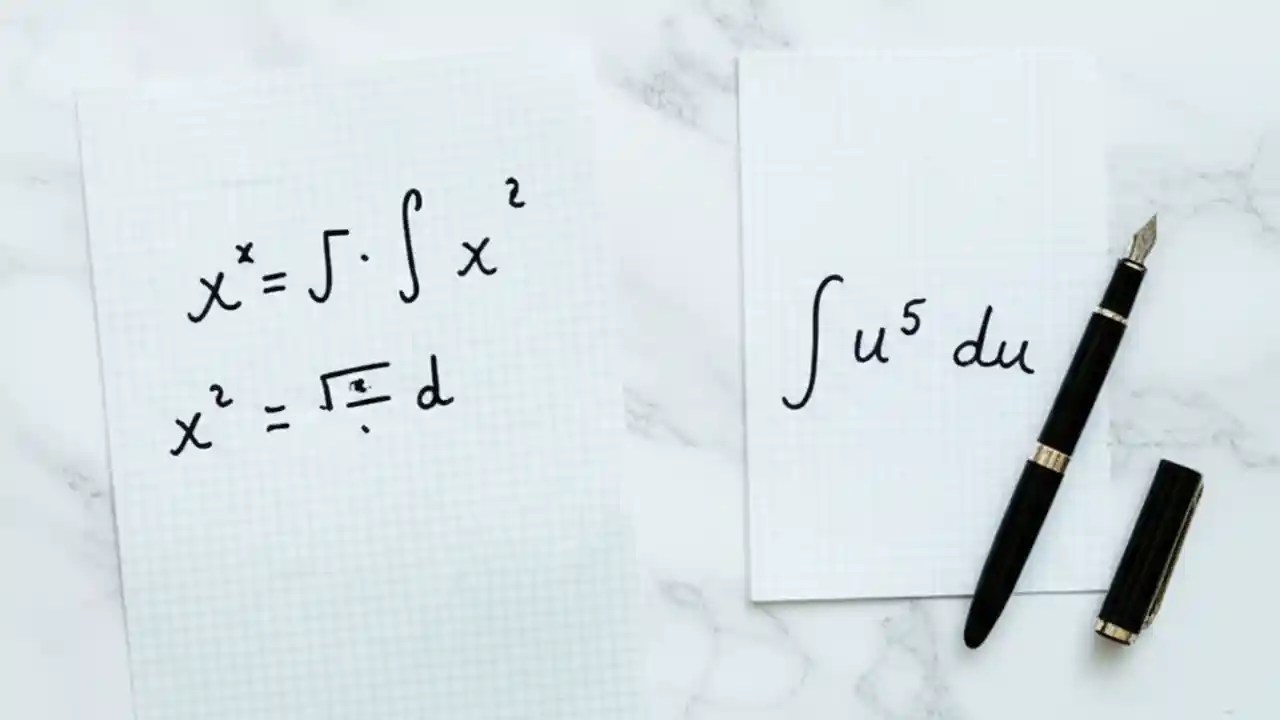 xˣ = ∫ · ∫ x²
x² = √ d
∫ u⁵ du